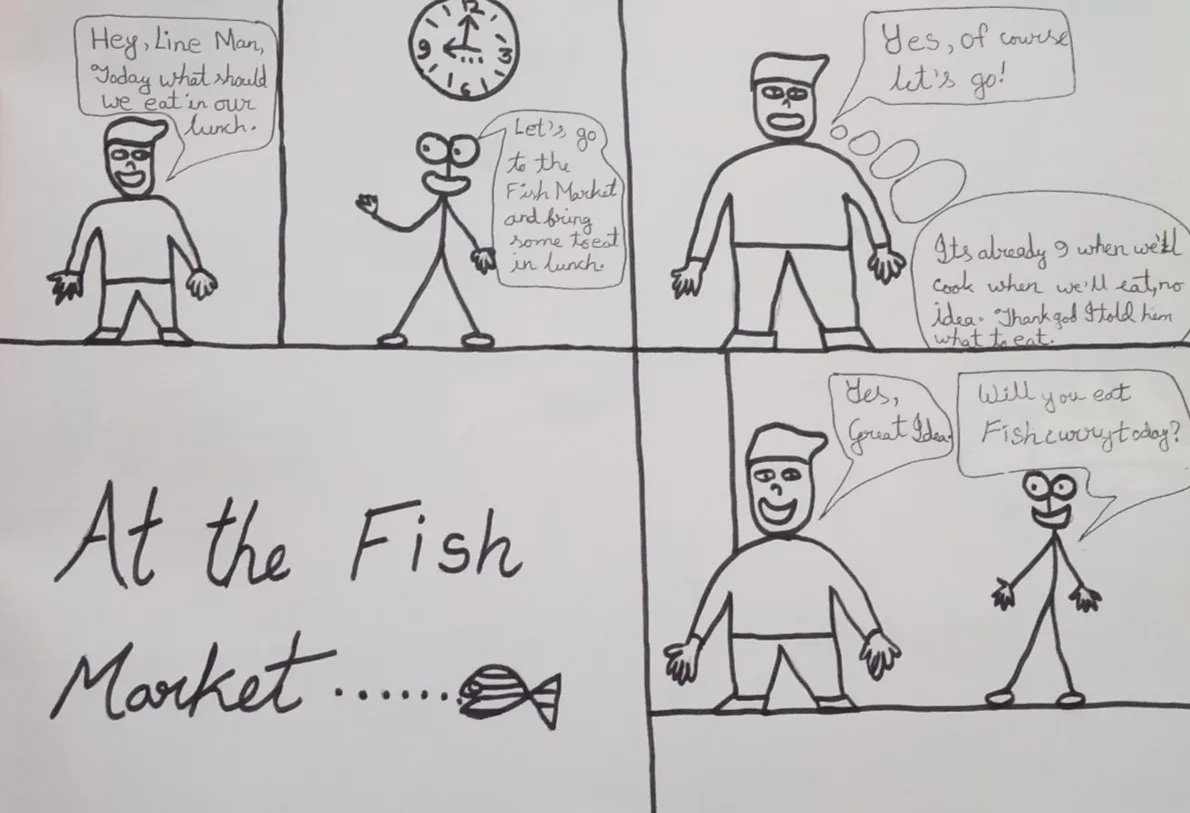 Hey, Line Man,
Today what should
we eat in our
lunch.
12
9
3
6
Let's go
to the
Fish Market
and bring
some to eat
in lunch.
Yes, of course
let's go!
Its already 9 when we'll
cook when we'll eat, no
idea. Thank god I told him
what to eat.
At the Fish
Market ......
Yes,
Great Idea.
Will you eat
Fish curry today?